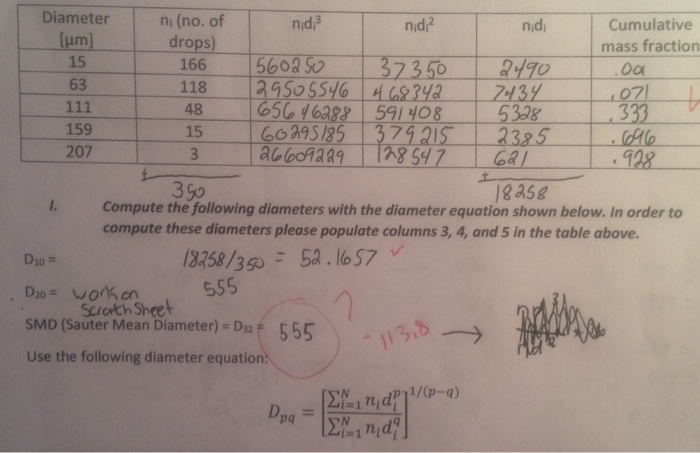 Diameter [µm] nᵢ (no. of drops) nᵢdᵢ³ nᵢdᵢ² nᵢdᵢ Cumulative mass fraction
15 166 560250 37350 2490 .001
63 118 29505546 468342 7434 .071
111 48 65646288 591408 5328 .333
159 15 60295185 379215 2385 .696
207 3 26609229 128547 621 .928
+ 350 + 18258
I. Compute the following diameters with the diameter equation shown below. In order to
compute these diameters please populate columns 3, 4, and 5 in the table above.
D₁₀ = 18258/350 = 52.1657 ✓
D₂₀ = work on 555
Scratch Sheet
SMD (Sauter Mean Diameter) = D₃₂ = 555 ? -113.8 →
Use the following diameter equation:
D_pq = [∑ᴺᵢ₌₁ nᵢdᵢᵖ / ∑ᴺᵢ₌₁ nᵢdᵢ^q]^1/(p−q)